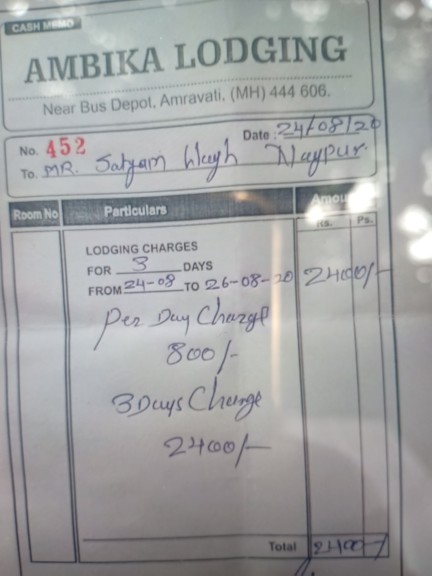 CASH MEMO
AMBIKA LODGING
Near Bus Depot, Amravati, (MH) 444 606.
No. 452 Date : 24/08/20
To. MR. Satyam Wagh Nagpur.
Room No Particulars Amount
Rs. Ps.
LODGING CHARGES
FOR 3 DAYS
FROM 24-08 TO 26-08-20 2400/-
Per Day Charge
800/-
3 Days Charge
2400/-
Total 2400/-